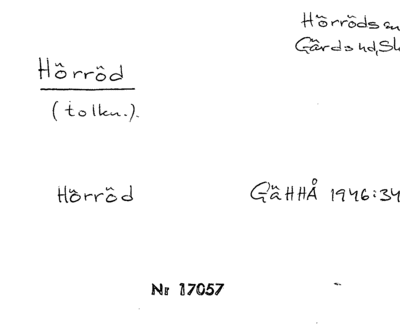 Hörröds sn
Gärds hd, Sk
Hörröd
(tolkn.).
Hörröd GäHHÅ 1946:34
Nr 17057